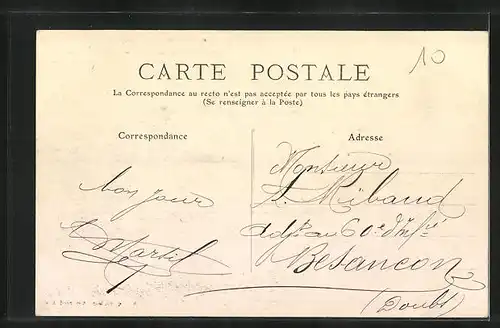 10
CARTE POSTALE
La Correspondance au recto n'est pas acceptée par tous les pays étrangers
(Se renseigner à la Poste)
Correspondance
Adresse
bon jour
Monsieur
Ribaud
au 60e d'Infie
Besancon
(Doubs)